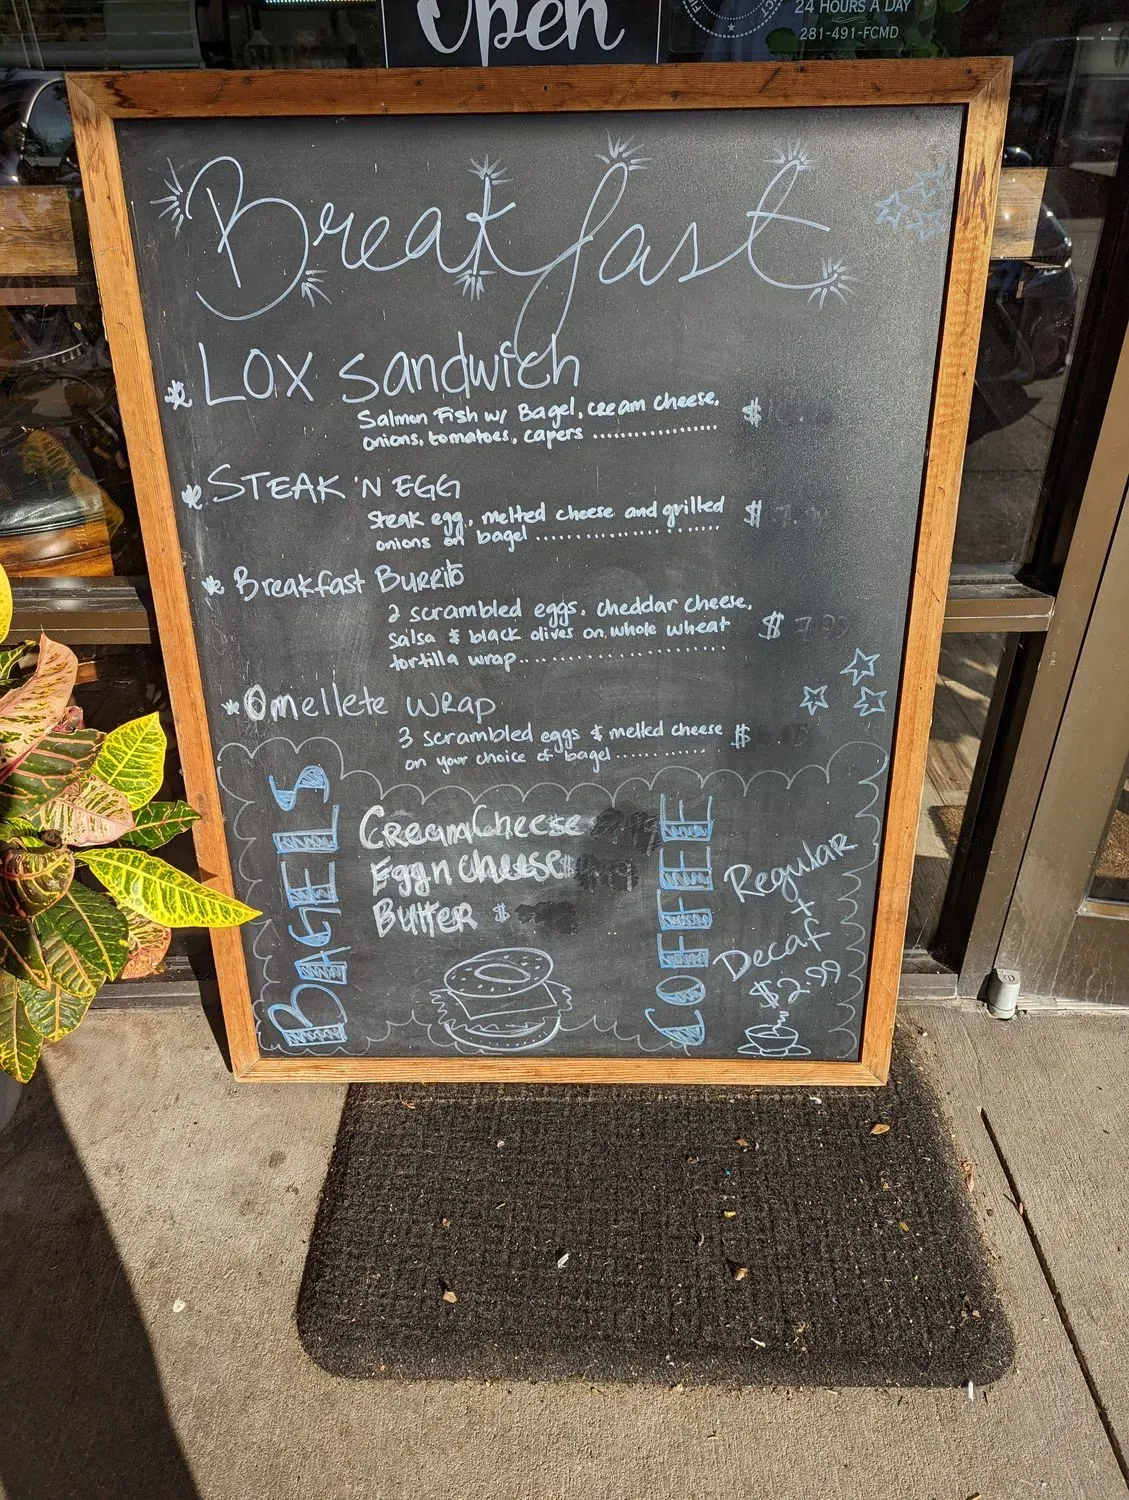 Open
24 HOURS A DAY
281-491-FCMD
Breakfast
* LOX Sandwich
Salmon Fish w/ Bagel, cream cheese,
onions, tomatoes, capers .................. $
* STEAK 'N EGG
Steak egg, melted cheese and grilled
onions on bagel .................. $
* Breakfast Burrito
2 scrambled eggs, cheddar cheese,
salsa & black olives on whole wheat
tortilla wrap.................... $
* Omellete WRAP
3 scrambled eggs & melted cheese
on your choice of bagel ............ $
BAGELS
Cream Cheese
Egg n cheese $
Butter $
COFFEE
Regular
+
Decaf
$2.99